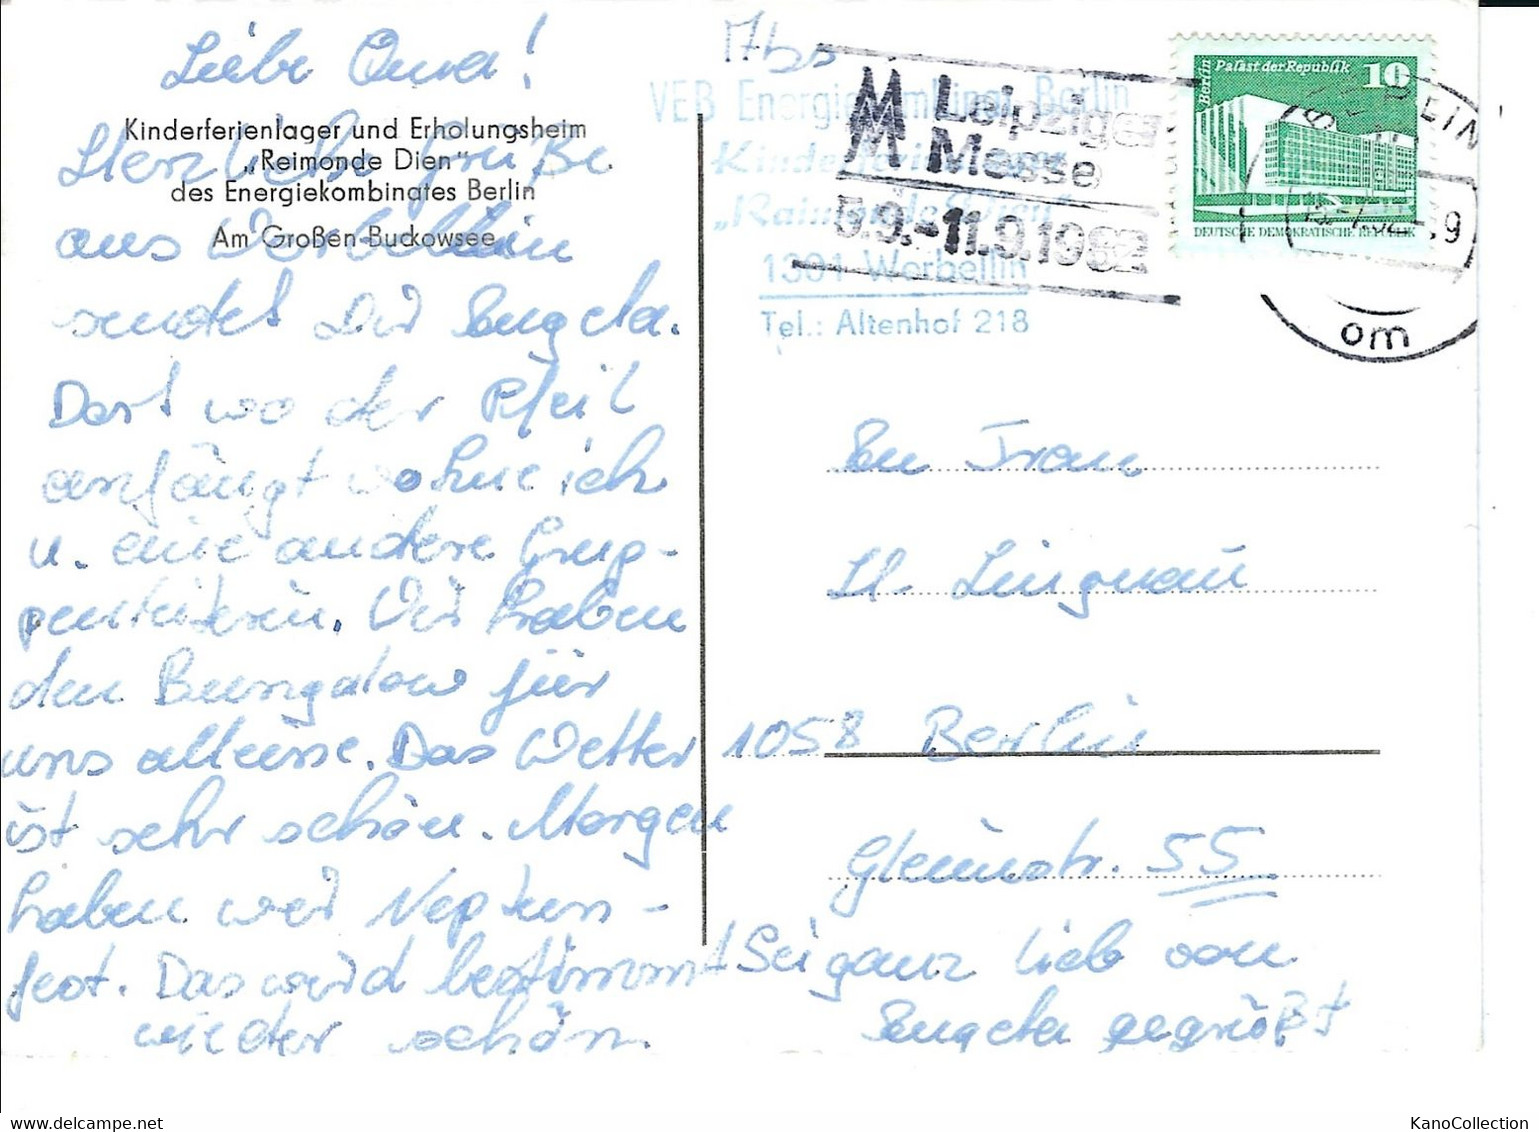 Liebe Oma!
Kinderferienlager und Erholungsheim
„Reimonde Dien“
des Energiekombinates Berlin
Am Großen Buckowsee
Herzliche Grüße
aus Werbellin
sendet Dir Angela.
Dort wo der Pfeil
anfängt wohne ich
u. eine andere Grup-
penleiterin. Wir haben
den Bungalow für
uns alleine. Das Wetter
ist sehr schön. Morgen
haben wir Neptun-
fest. Das wird bestimmt
wieder schön.
VEB Energiekombinat Berlin
Kinderferienlager
„Raimonde Dien“
1301 Werbellin
Tel.: Altenhof 218
MM Leipziger
Messe
5.9.-11.9.1982
Berlin Palast der Republik 10
DEUTSCHE DEMOKRATISCHE REPUBLIK
om
An Frau
Ll. Lingnau
1058 Berlin
Gleimstr. 55
Sei ganz lieb von
Angela gegrüßt
KanoCollection
delcampe.net